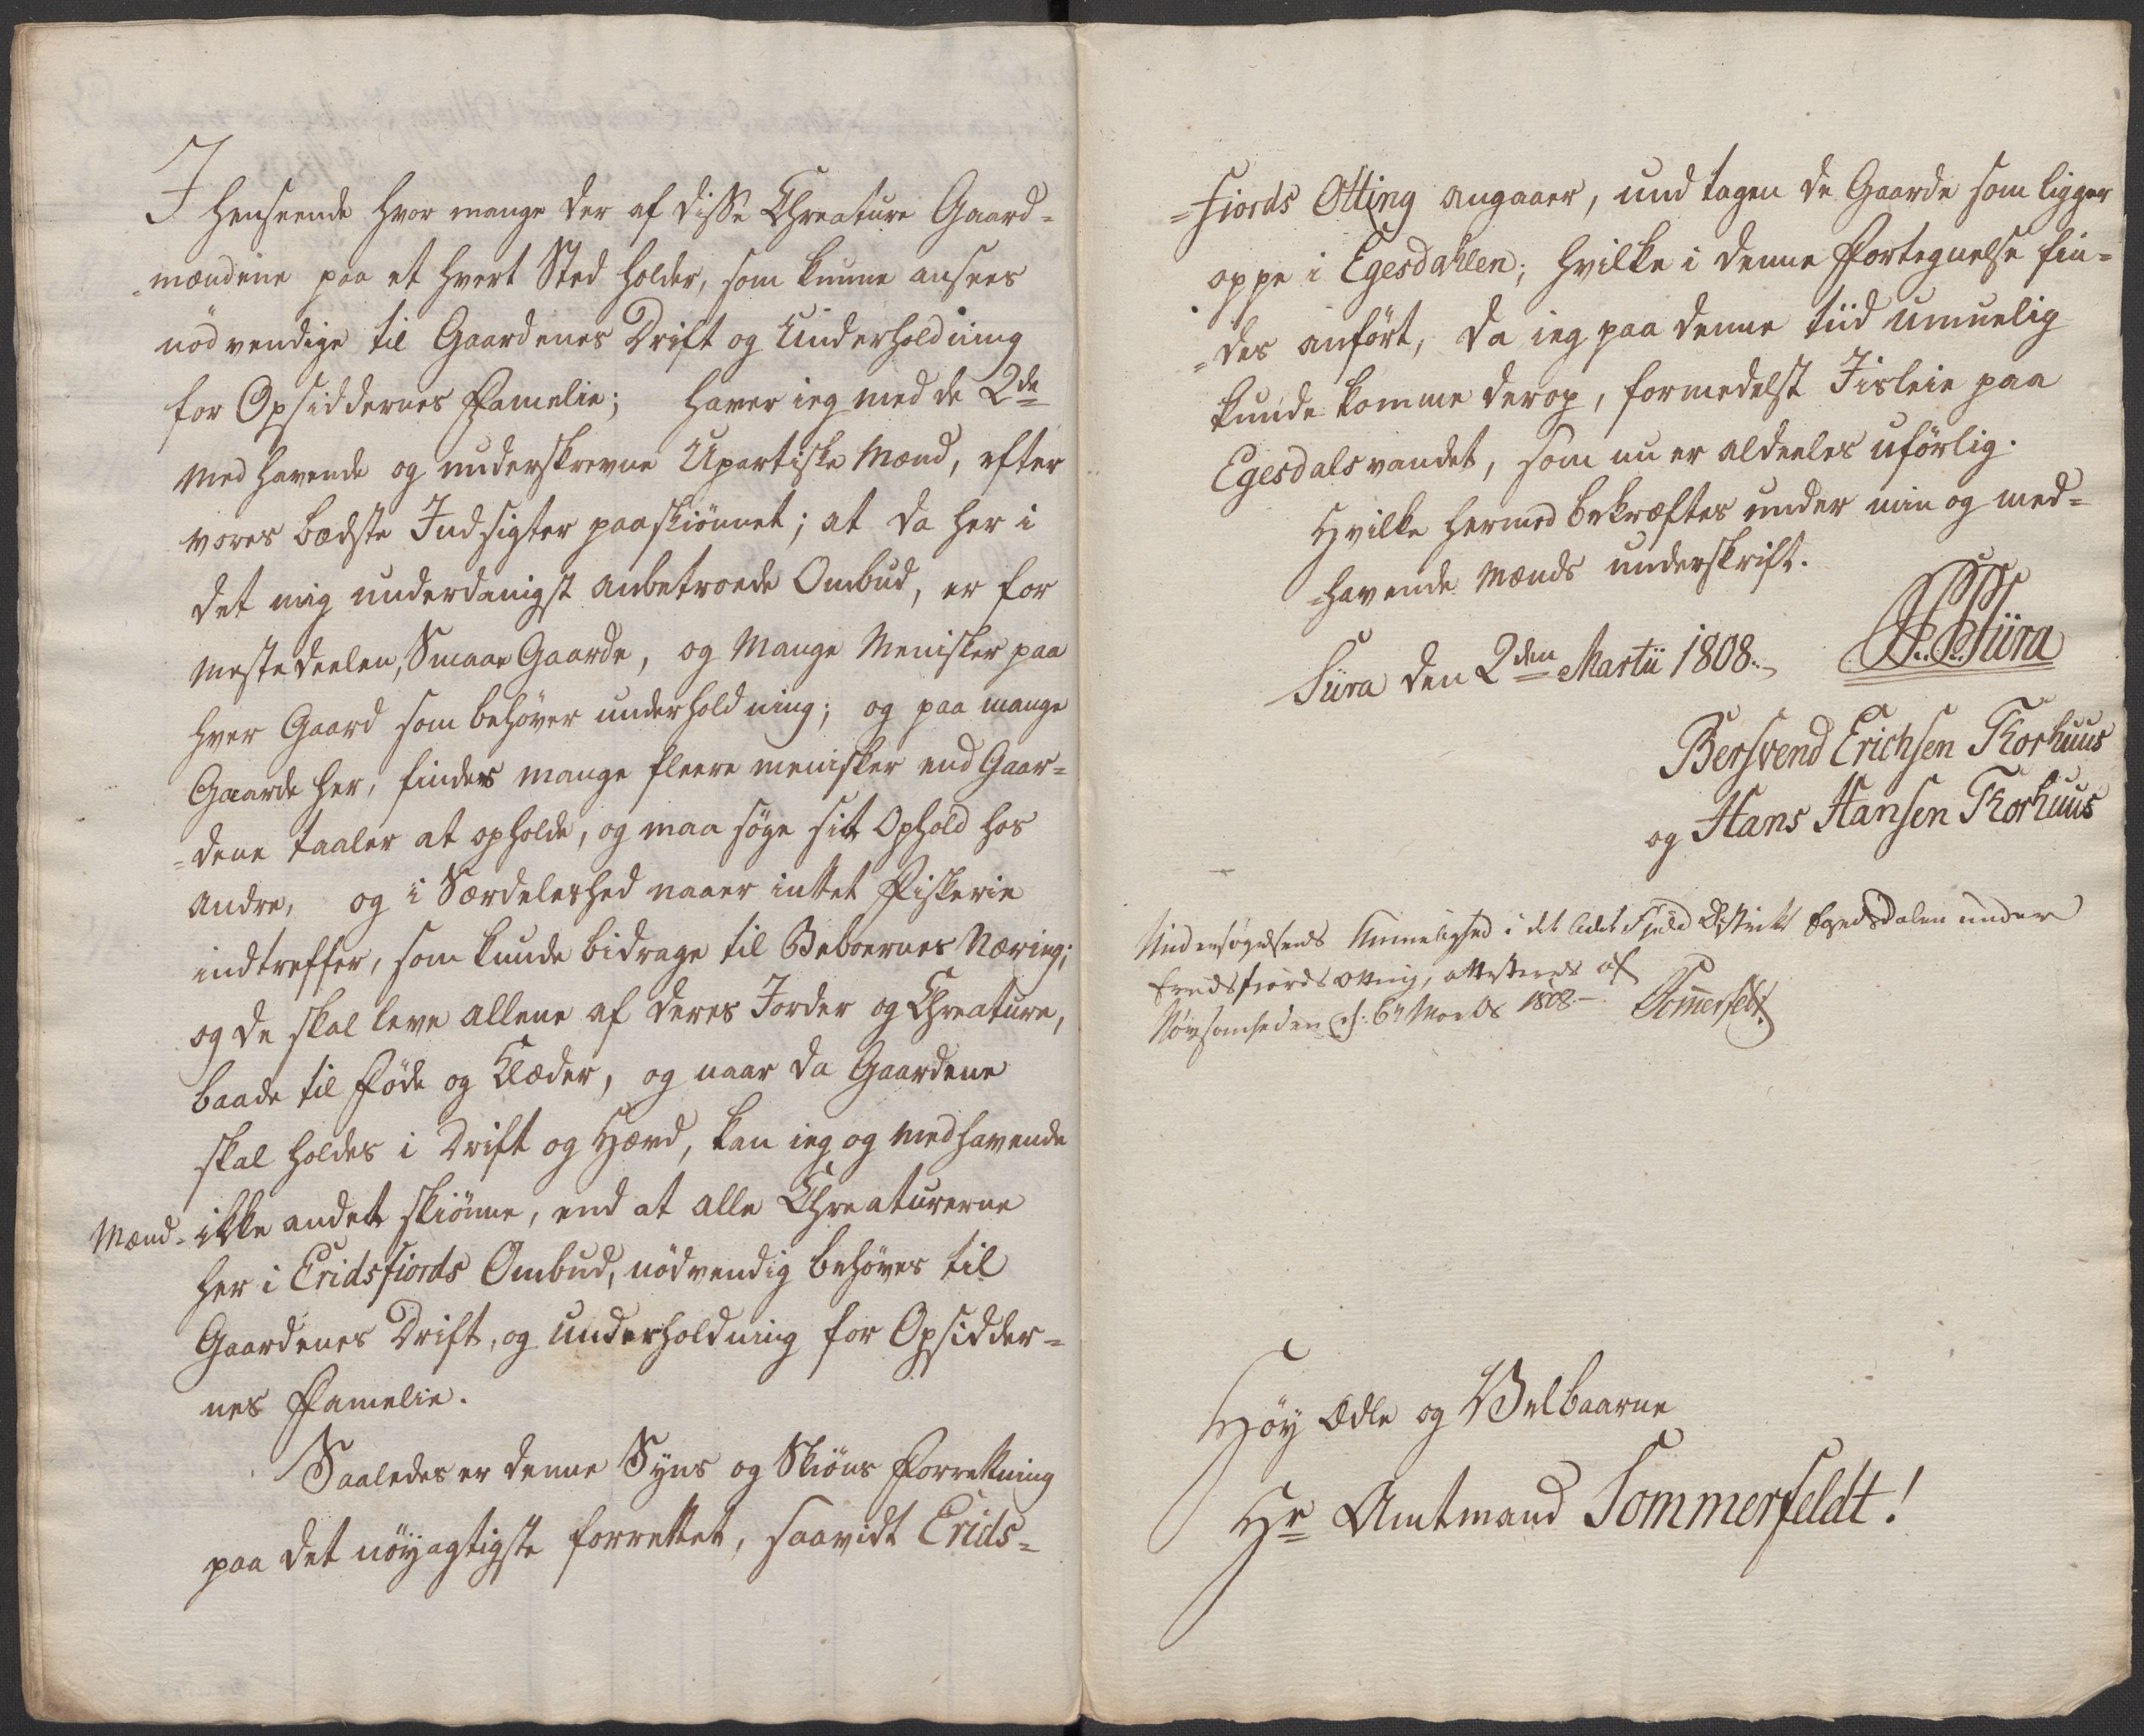 I henseende hvor mange der af disse Chreature Gaard-
-mændene paa et hvert Sted holder, som kunne ansees
nödvendige til Gaardenes Drift og Underholdning
for Opsiddernes Famelie; haver ieg med de 2de
medhavende og underskrevne Upartiske Mænd, efter
vores bædste Indsigter paaskiönnet; at da her i
det mig underdanigst anbetroede Ombud, er for
mestedeelen, Smaae Gaarde, og Mange Menisker paa
hver Gaard som behöver underholdning; og paa mange
Gaarde her, findes mange fleere menisker end Gaar-
-dene taaler at opholde, og maa söge sit Ophold hos
andre, og i Særdeleshed naaer intet Fiskerie
indtreffer, som kunde bidrage til Beboernes Næring;
og de skal leve allene af deres Jorder og Chreature,
baade til Föde og Klæder, og naar da Gaardene
skal holdes i Drift og Hævd, kan ieg og medhavende
Mænd- ikke andet skiönne, end at alle Chreaturerne
her i Eridsfiords Ombud, nödvendig behöves til
Gaardenes Drift, og underholdning for Opsidder-
nes Famelie.
Saaledes er denne Syns og Skiöns Forrettning
paa det nöyagtigste forrettet, saavidt Erids-
-fiords Otting angaaer, undtagen de Gaarde som ligger
oppe i Egesdahlen; hvilke i denne Fortegnelse fin-
-des anfört, da ieg paa denne tiid umuelig
kunde komme derop, formedelst Jisleie paa
Egesdalsvandet, som nu er aldeeles uförlig.
Hvilke hermed bekræftes under min og med-
-havende Mænds underskrift.
Siira den 2den Martii 1808. Siira
Bersvend Erichsen Torhuus
og Hans Hansen Torhuus
Undersøgelsens Umuelighed i det lidet Fjeld District Egesdalen under
Eridsfiords otting, attesteres af
Nøysomheden d: 6te Marts 1808 Sommerfeldt
Höy Ædle og Velbaarne
Hr Amtmand Sommerfeldt!